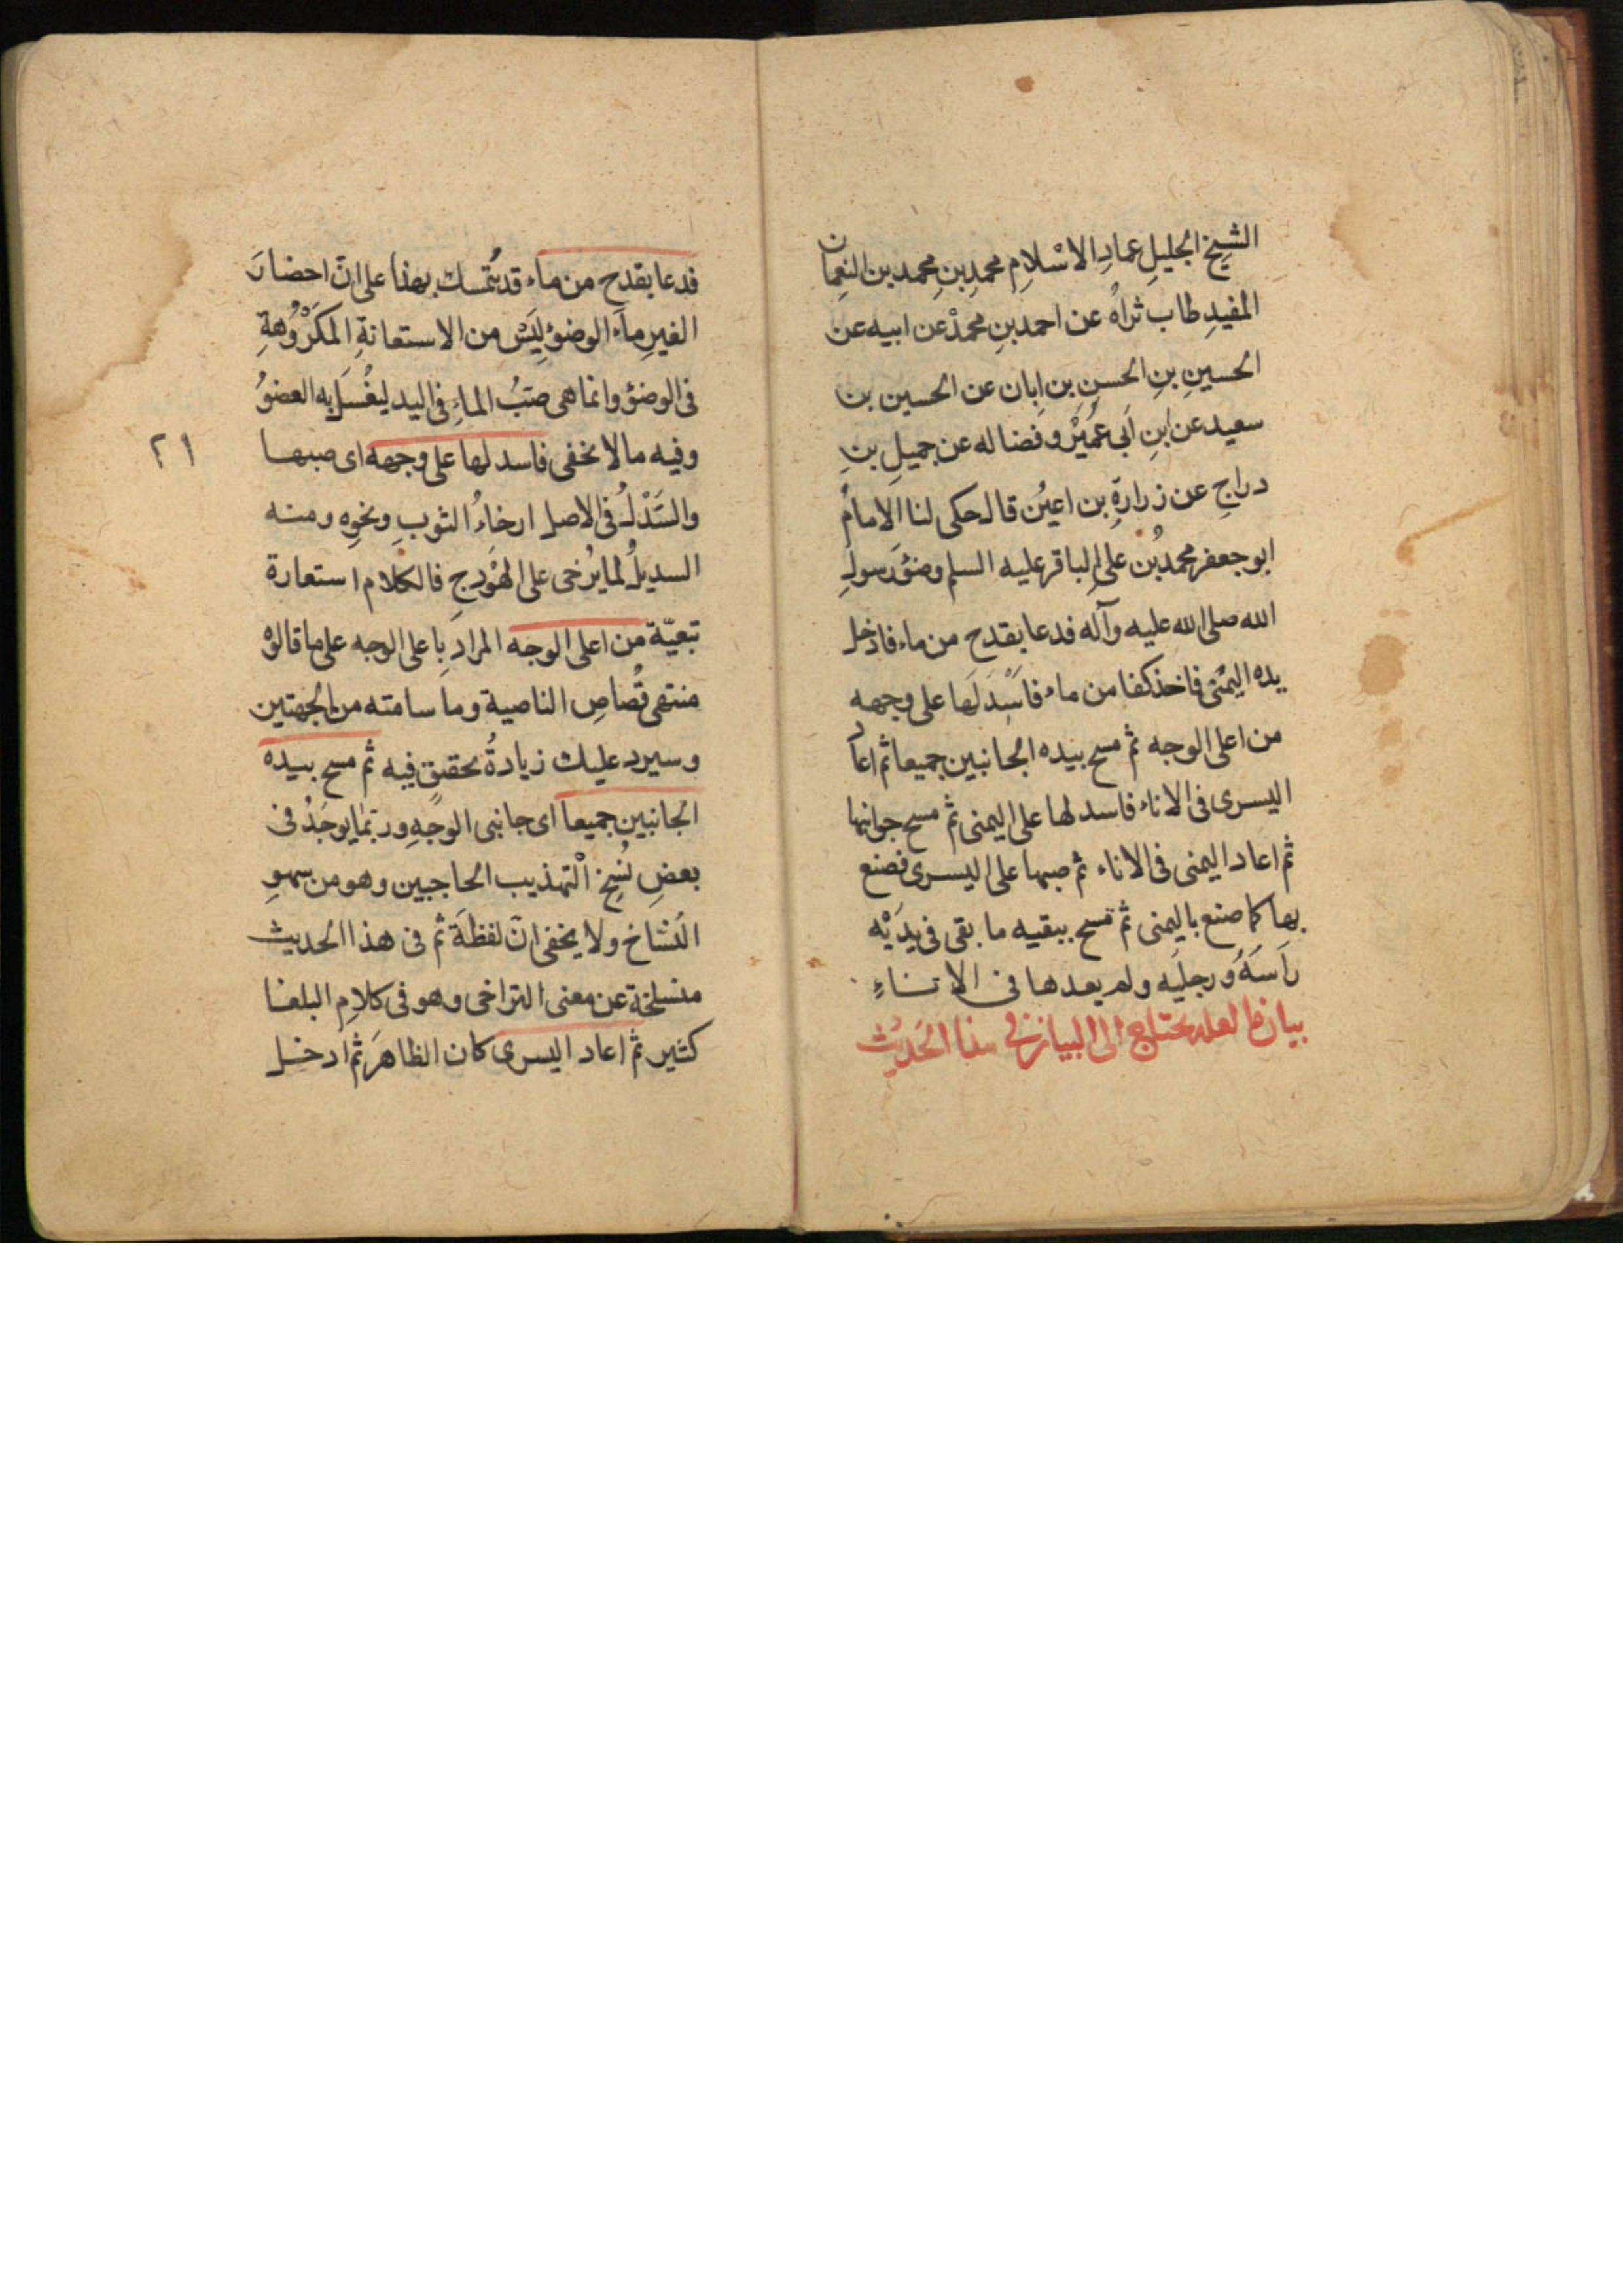 الشيخ الجليلِ عمادِ الاسْلامِ محمدِ بنِ محمد بن النعمان
المفيدِ طاب ثراهُ عن احمد بنِ محمدْ عن ابيه عن
الحسينِ بنِ الحسنِ بن ابان عن الحسين بن
سعيد عن ابنِ اَبى عُمَيْر وفضاله عن جميلِ بنِ
دراجٍ عن زرارةِ بن اعيُن قال حكى لنا الامامُ
ابو جعفر محمدُ بُن علىٍ الباقر عليه السلم وضؤَ رسولِ
الله صلى الله عليه وآله فدعا بقدح من ماء فادخل
يده اليمُنى فاخذ كفا من ماء فاَسْدَلَها على وجهه
من اعلى الوجه ثم مسح بيده الجانبين جميعا ثم اعاد
اليسرى فى الاناء فاسدلها على اليمنى ثم مسح جوانبها
ثم اعاد اليمنى فى الاناء ثم صبها على اليسرى فصنع
بها كما صنع باليمنى ثم مسح ببقيه ما بقى فى يدَيْه
رأسَهُ ورجليَه ولم يعدها فى الاناءِ
بيان ما لعله يحتاج الى البيان فى هذا الحَديْث
فدعا بقدح من ماء قد يُتمسك بهذا على انّ احضارَ
الغيرِ ماَء الوضؤِ ليَسْ من الاستعانةِ المكَرْوُهةِ
فى الوضؤ وانما هى صبُّ الماءِ فى اليد ليغُسَل به العضوُ
وفيه ما لا يخفى فاسدلها على وجهه اى صبها
٢١
والسَدْلُ فى الاصل ارخاءُ الثوبِ ونحوِه ومنه
السديلُ لما يُرخى على الهَودجِ فالكلام استعارة
تبعيّة من اعلى الوجه المراد بِاعلى الوجه على ما قالوْ
منتهى قُصاصِ الناصية وما سامته من الجهتين
وسيرد عليك زيادةُ تحقيقٍ فيه ثم مسح بيده
الجانبين جميعا اى جانبى الوجهِ وربّما يوجَدُ فى
بعضِ نُسخِ اْلتهذيب الحاجبين وهو من سهوِ
النسّاخ ولا يخفى انّ لفظةَ ثم فى هذا الحديث
منسلخة عن معنى التراخى وهو فى كلامِ البلغا
كثير ثم اعاد اليسرى كان الظاهرَ ثم ادخل